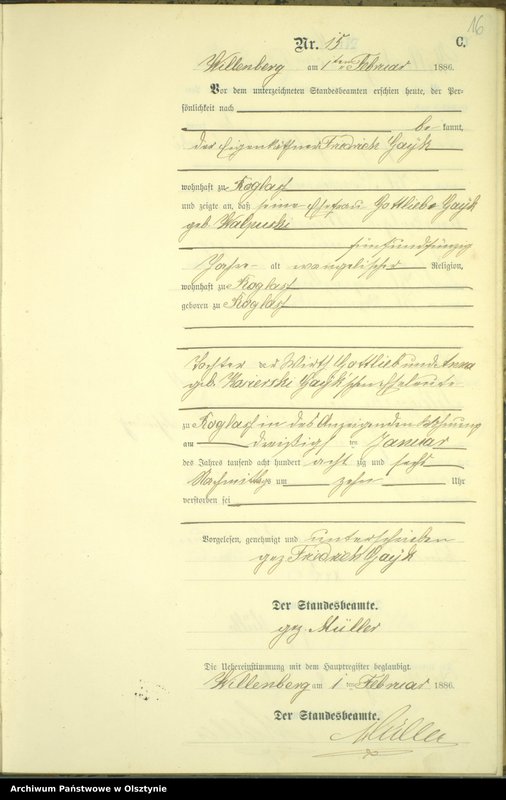 16
Nr. 15 C.
Willenberg am 1ten Februar 1886.
Vor dem unterzeichneten Standesbeamten erschien heute, der Per-
sönlichkeit nach
be kannt,
der Eigenkäthner Friedrich Gayk
wohnhaft zu Koglast
und zeigte an, daß seine Ehefrau Gottliebe Gayk
geb.
fünfundfünzig
Jahre alt evangelischer Religion,
wohnhaft zu Koglast
geboren zu Koglast
Tochter der Wirth Gottlieb und Anna
geb. Gayk'schen Eheleute
zu Koglast in des Anzeigenden Wohnung
am dreißigst ten Januar
des Jahres tausend acht hundert acht zig und sechs
Nachmittags um zehn Uhr
verstorben sei
Vorgelesen, genehmigt und unterschrieben
gez Friedrich Gayk
Der Standesbeamte.
gez. Müller
Die Uebereinstimmung mit dem Hauptregister beglaubigt.
Willenberg am 1 ten Februar 1886.
Der Standesbeamte.
Müller
Archiwum Państwowe w Olsztynie